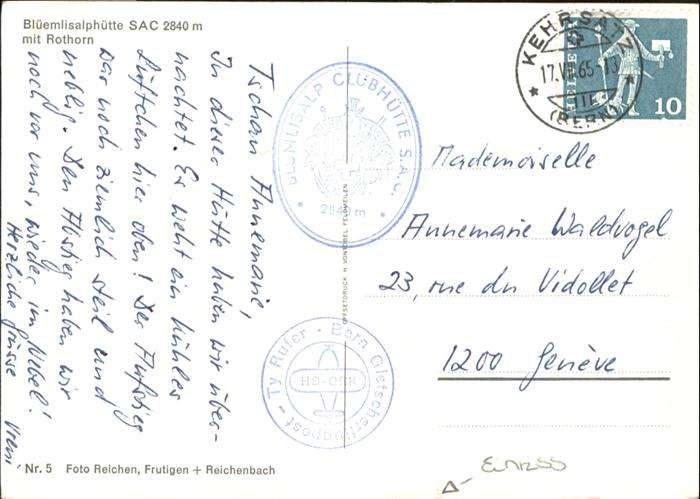 Blüemlisalphütte SAC 2840 m
mit Rothorn
Tschau Annemarie,
In dieser Hütte haben wir über-
nachtet. Es weht ein kühles
Lüftchen hier oben! Der Aufstieg
war noch ziemlich steil und
neblig. Den Abstieg haben wir
noch vor uns, wieder im Nebel!
Herzliche Grüsse
Vreni
Nr. 5 Foto Reichen, Frutigen + Reichenbach
BLÜMLISALP CLUBHÜTTE S.A.C.
2840 m
OFFSETDRUCK H. VONTOBEL FELDMEILEN
Ty Rufer - Bern Gletscherflugpost
KEHRSATZ
17.VII.65 13
(BERN)
HELVETIA
10
Mademoiselle
Annemarie Waldvogel
23, rue du Vidollet
1200 Genève